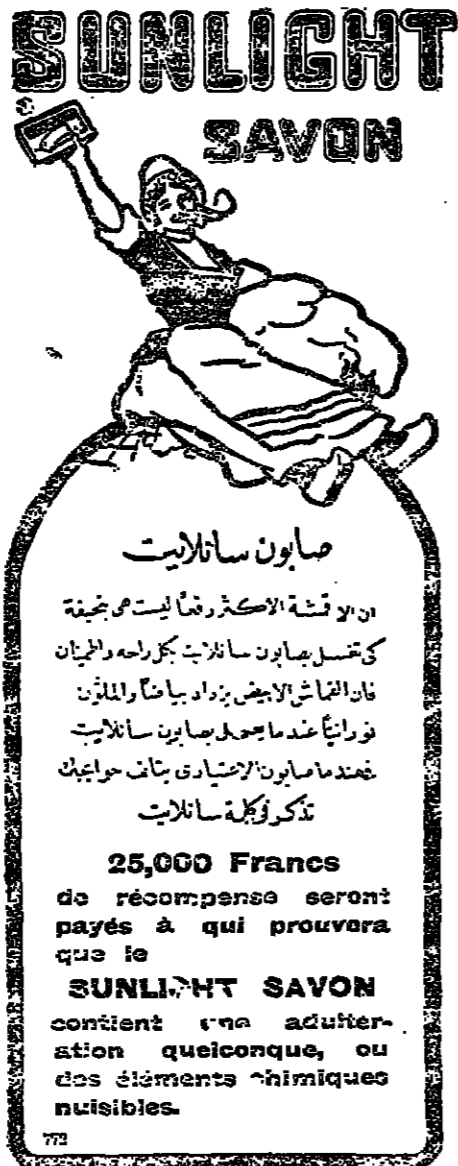 SUNLIGHT
SAVON
صابون سانلايت
ان الاقمشة الاكثر رفعاً ليست هى بنحيفة
كى تغسل بصابون سانلايت بكل راحه واطمينان
فان القماش الابيض يزداد بياضاً والملوّن
نورانيّاً عندما بصابون سانلايت
صابون الاعتيادى حوايجك
تذكر كلمة سانلايت
25,000 Francs
de récompense seront
payés à qui prouvera
que le
SUNLIGHT SAVON
contient une adulter-
ation quelconque, ou
des éléments chimiques
nuisibles.
772